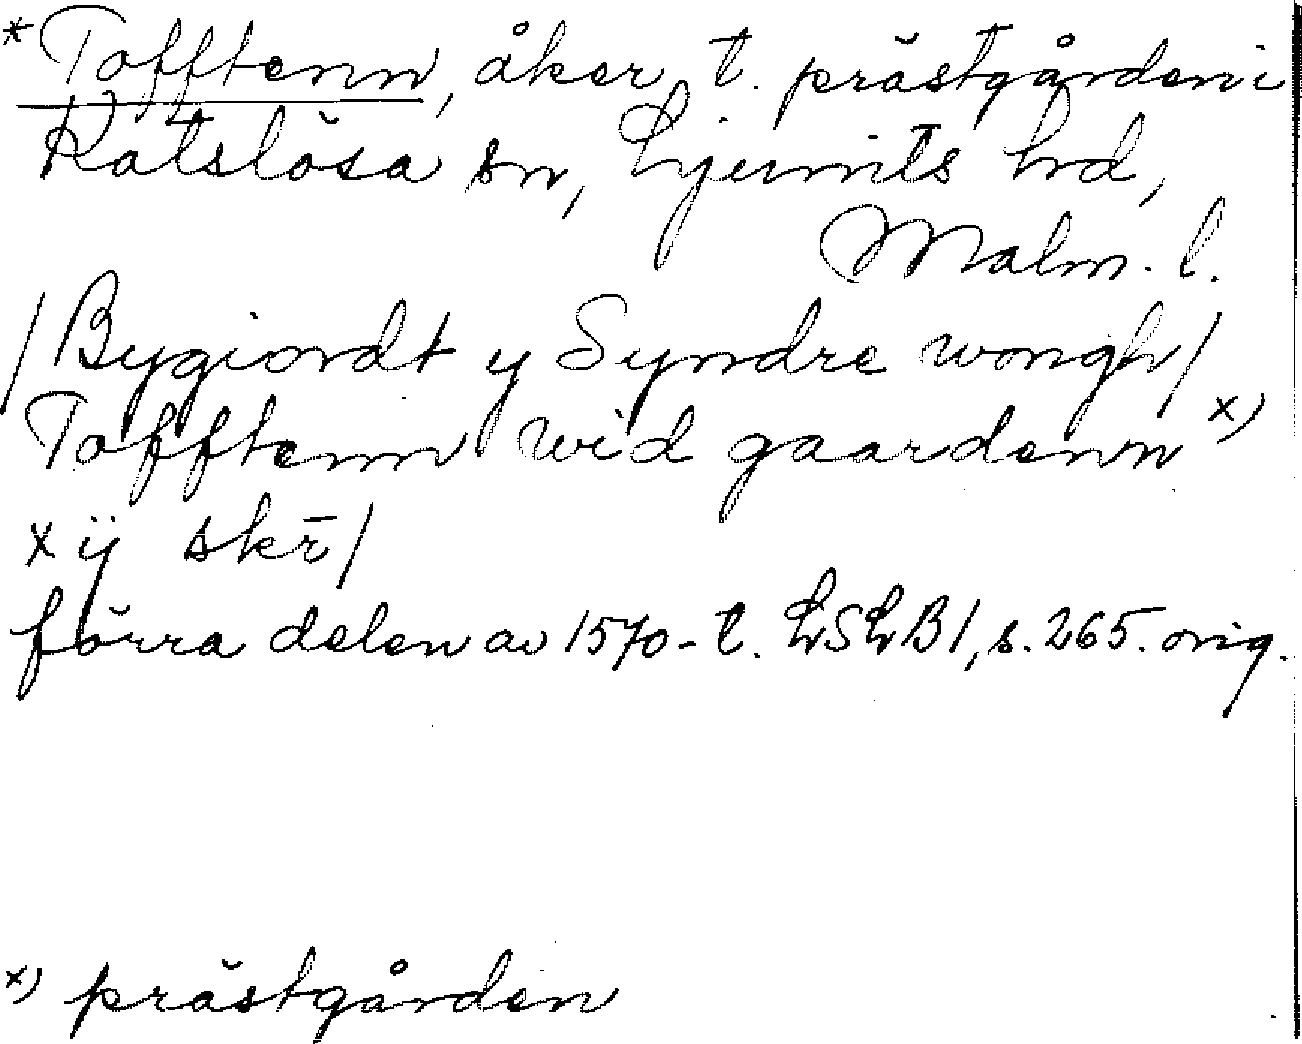 * Tofftenn, åker t. prästgården i
Katslösa sn, Ljunits hrd,
Malm. l.
/Bygiordt y Syndre wongh/
Tofftenn wid gaardenn x)
x ij skr̄/
förra delen av 1570-t. LSLB1, s. 265. orig.
x) prästgården